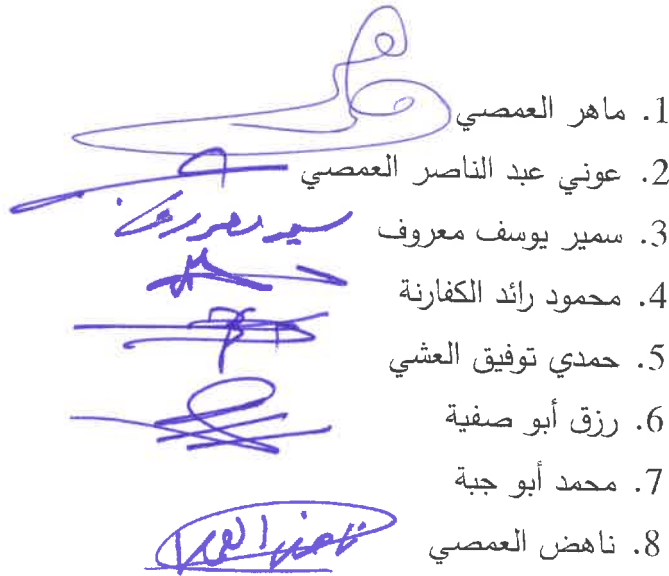 1. ماهر العمصي
2. عوني عبد الناصر العمصي
3. سمير يوسف معروف
4. محمود رائد الكفارنة
5. حمدي توفيق العشي
6. رزق أبو صفية
7. محمد أبو جبة
8. ناهض العمصي